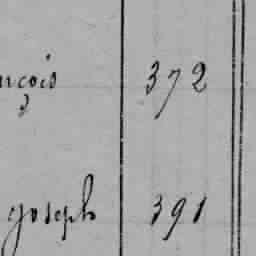 nçois 372
joseph 391